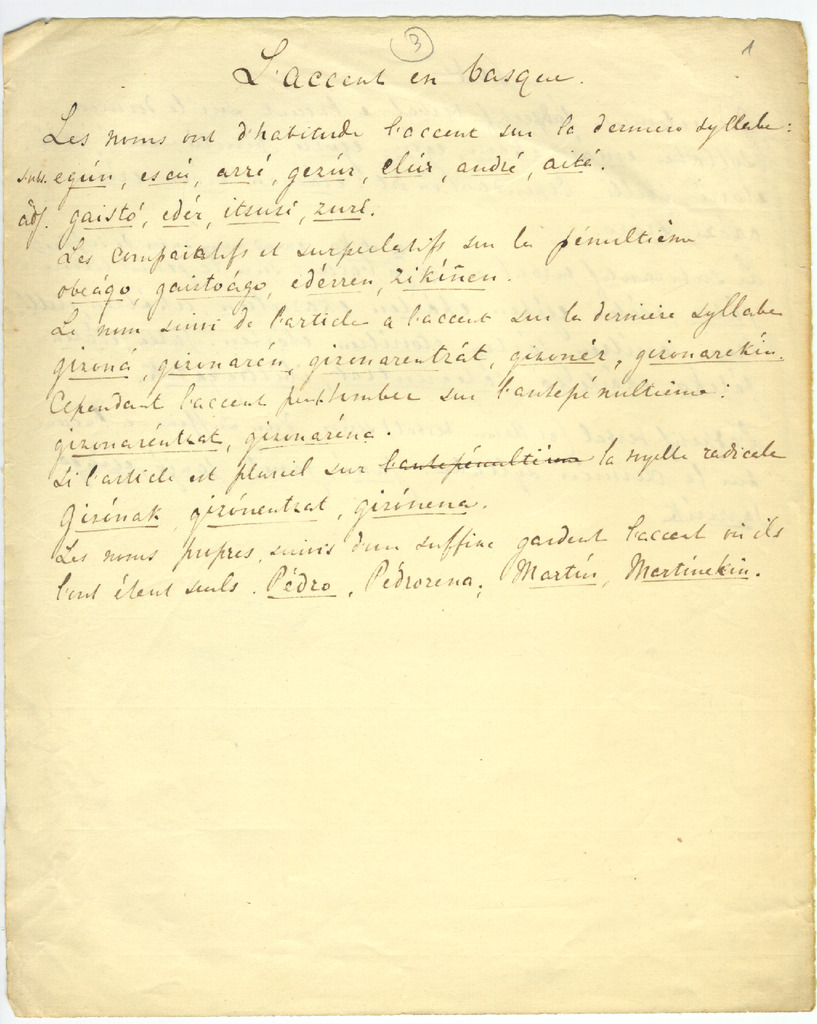 3
1
L'accent en basque.
Les noms ont d'habitude l'accent sur la dernière syllabe :
subs. egún, escú, arrí, gezúr, elúr, andré, aitá.
adj. gaistó, edér, itsusí, zurí.
Les comparatifs et surperlatifs sur la pénultième
obeágo, gaistoágo, edérren, zikíñen.
Le nom suivi de l'article a l'accent sur la dernière syllabe
gizoná, gizonarén, gizonarentzát, gizonér, gizonarekín.
Cependant l'accent peut tomber sur l'antepénultième :
gizonaréntzat, gizonaréna.
Si l'article est pluriel sur l'antepénultième la voyelle radicale
Gizónak, gizónentzat, gizónena.
Les noms propres, suivis d'un suffixe gardent l'accent où ils
l'ont étant seuls. Pédro, Pédrorena; Martín, Martínekin.